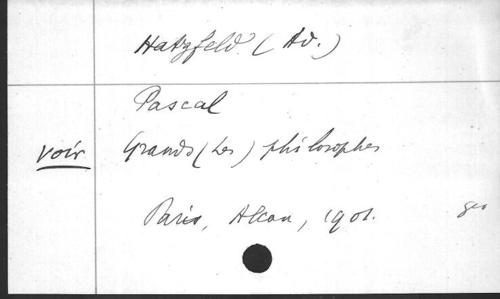 Hatzfeld (Ad.)
Pascal
voir Grands (Les) philosophes
Paris, Alcan, 1901.